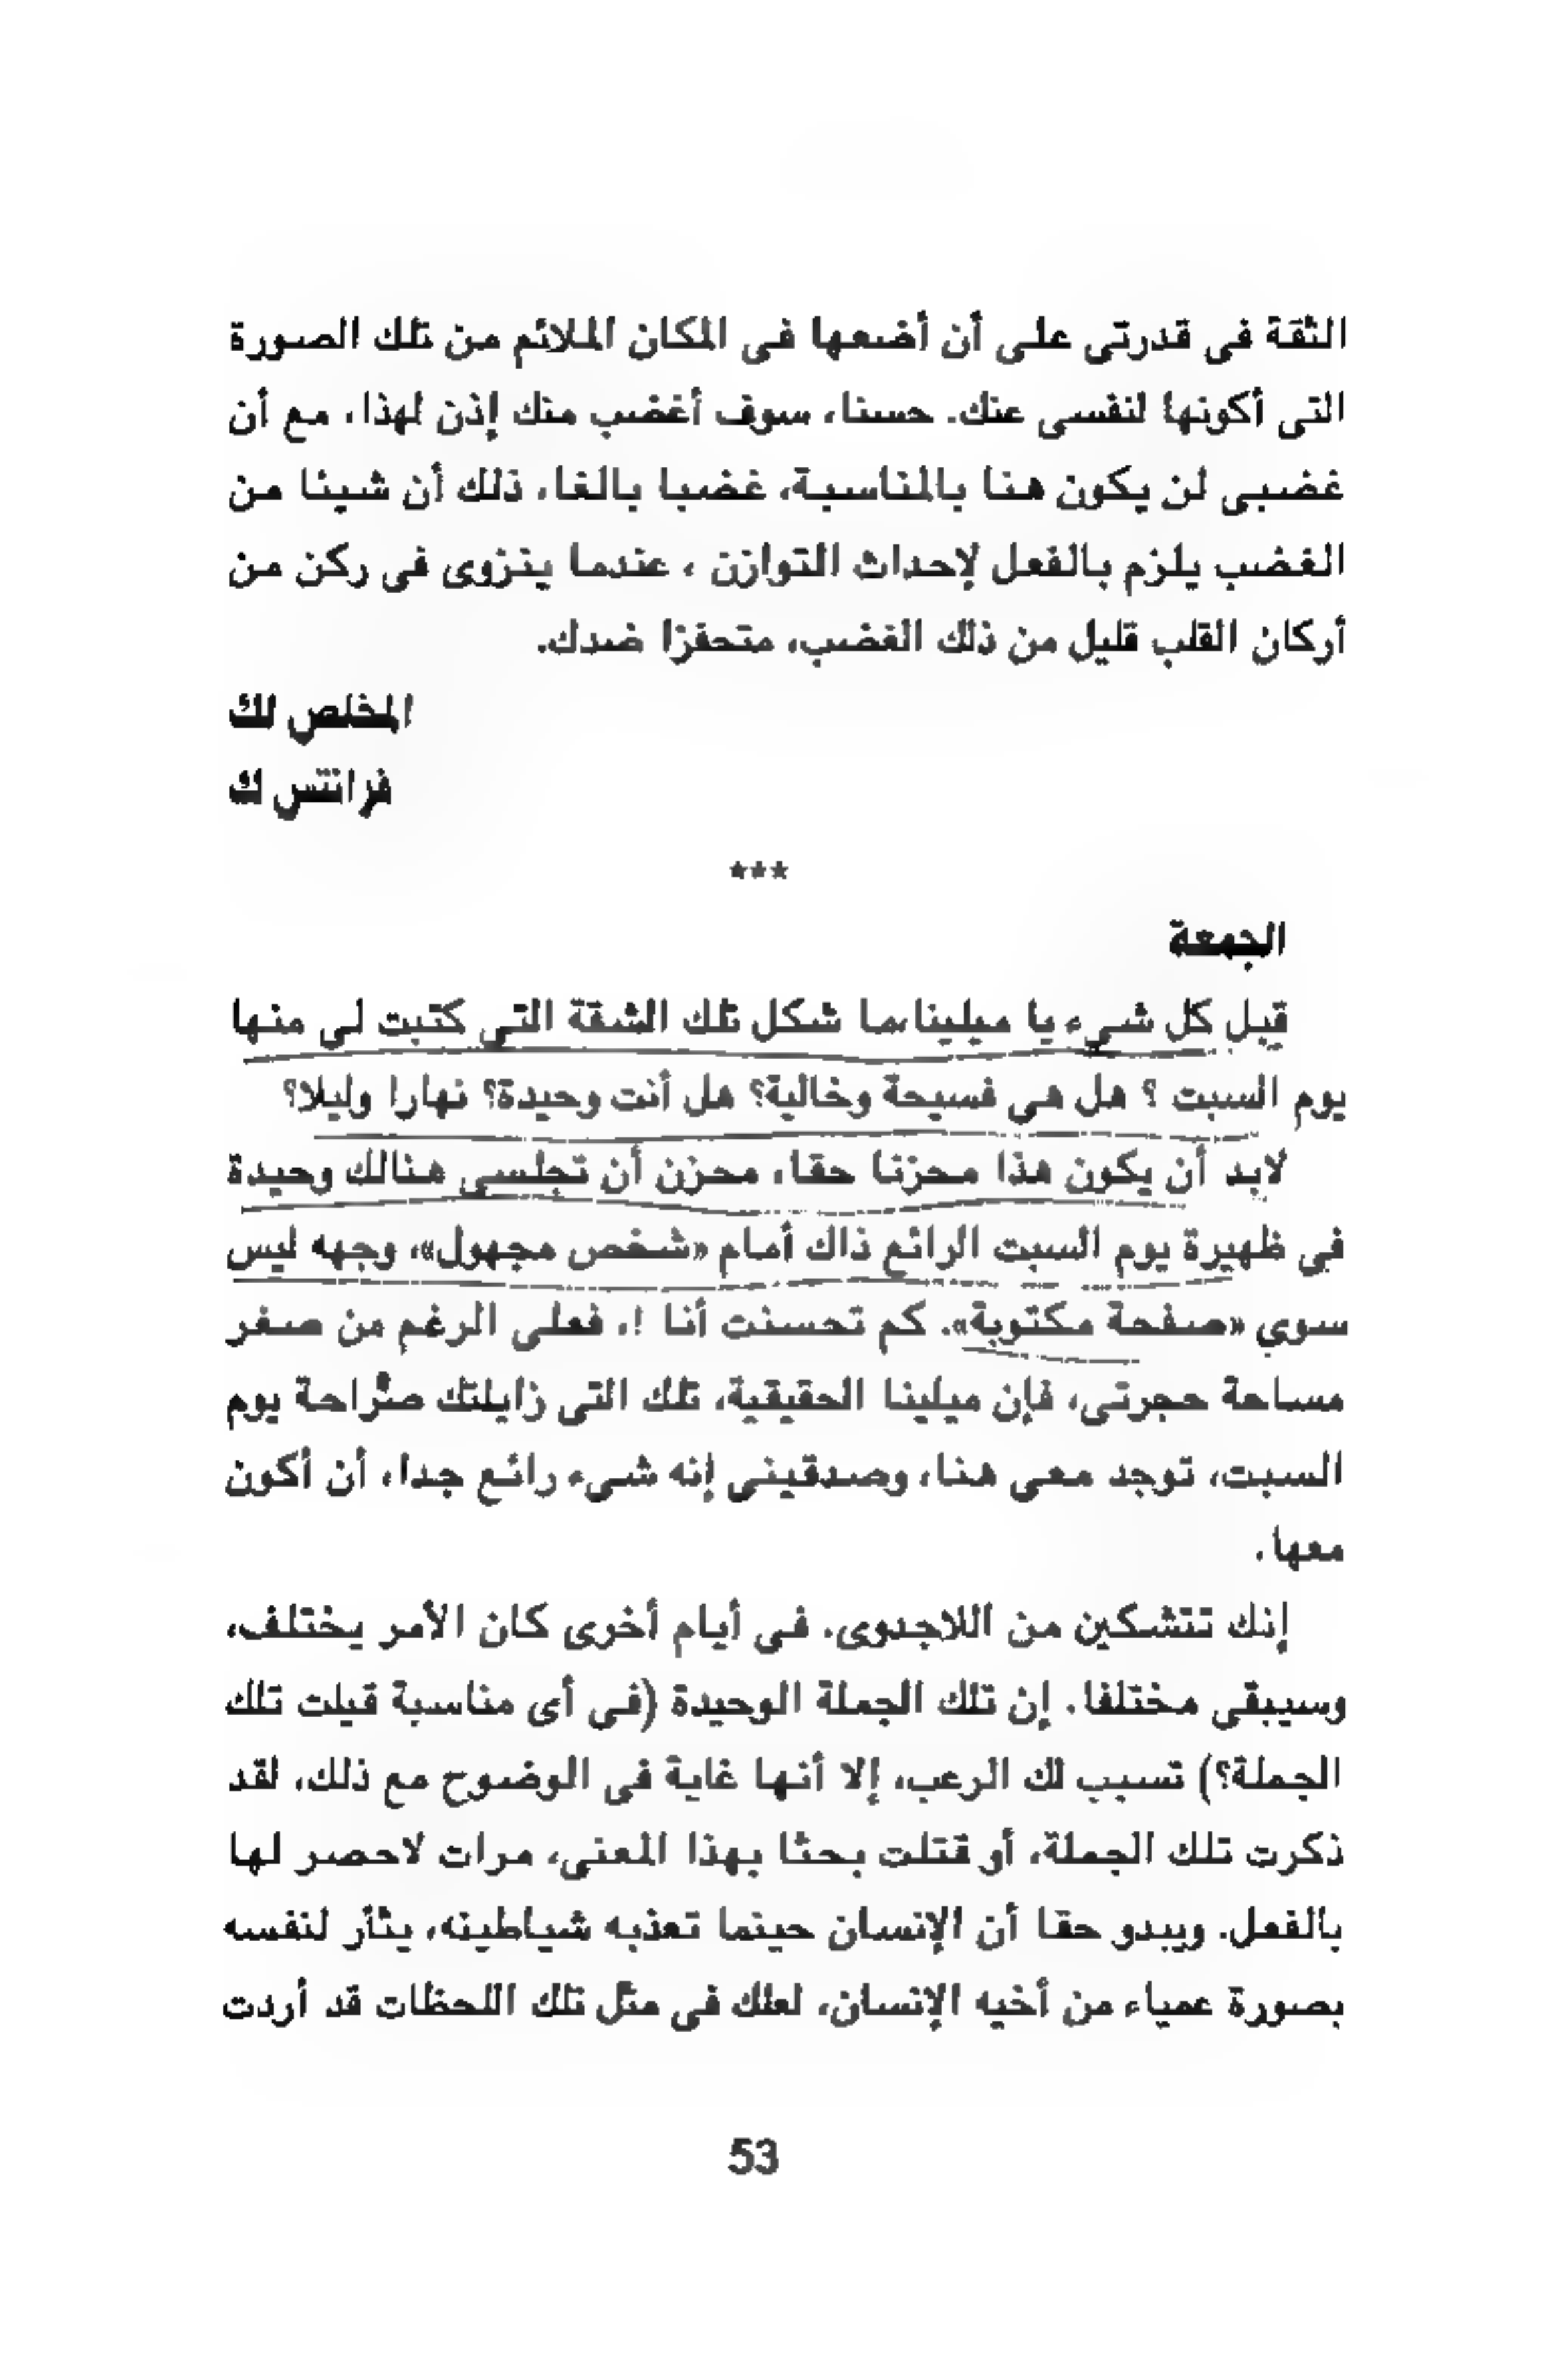 الثقة فى قدرتى على أن أضعها فى المكان الملائم من تلك الصورة
التى أكونها لنفسى عنك. حسنا، سوف أغضب منك إذن لهذا، مع أن
غضبى لن يكون هنا بالمناسبة، غضبا بالغا، ذلك أن شيئا من
الغضب يلزم بالفعل لإحداث التوازن ، عندما ينزوى فى ركن من
أركان القلب قليل من ذلك الغضب، متحفزا ضدك.
المخلص لك
فرانتس ك
***
الجمعة
قبل كل شىء يا ميلينا،ما شكل تلك الشقة التى كتبت لى منها
يوم السبت ؟ هل هى فسيحة وخالية؟ هل أنت وحيدة؟ نهارا وليلا؟
لابد أن يكون هذا محزنا حقا، محزن أن تجلسى هنالك وحيدة
فى ظهيرة يوم السبت الرائع ذاك أمام «شخص مجهول»، وجهه ليس
سوى «صفحة مكتوبة». كم تحسنت أنا !، فعلى الرغم من صغر
مساحة حجرتى، فإن ميلينا الحقيقية، تلك التى زايلتك صرُاحة يوم
السبت، توجد معى هنا، وصدقينى إنه شىء رائع جدا، أن أكون
معها.
إنك تتشكين من اللاجدوى. فى أيام أخرى كان الأمر يختلف،
وسيبقى مختلفا. إن تلك الجملة الوحيدة (فى أى مناسبة قيلت تلك
الجملة؟) تسبب لك الرعب، إلا أنها غاية فى الوضوح مع ذلك، لقد
ذكرت تلك الجملة، أو قتلت بحثا بهذا المعنى، مرات لاحصر لها
بالفعل. ويبدو حقا أن الإنسان حينما تعذبه شياطينه، يثأر لنفسه
بصورة عمياء من أخيه الإنسان، لعلك فى مثل تلك اللحظات قد أردت
53